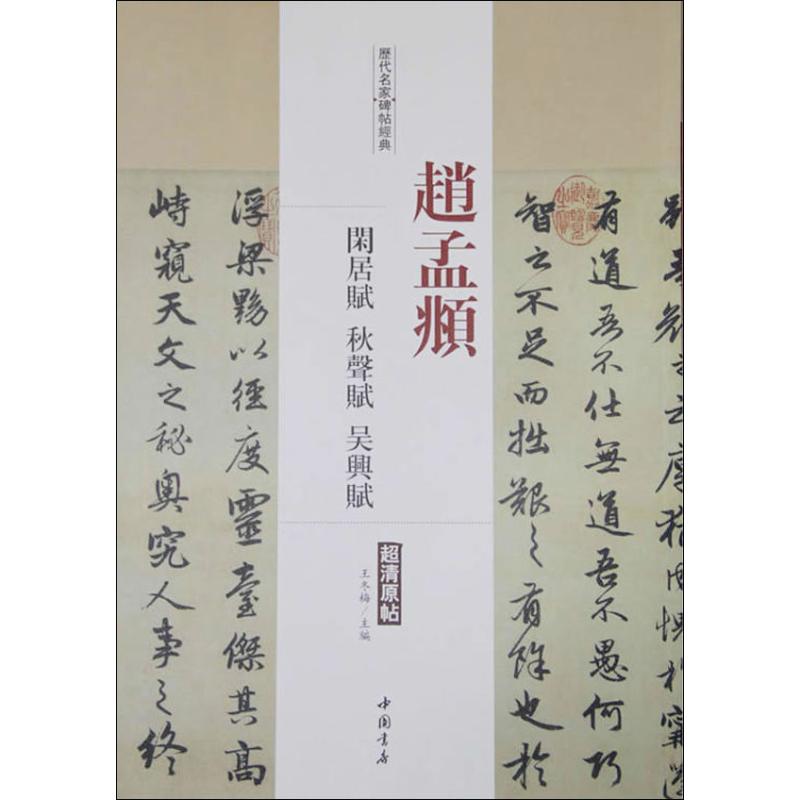 歷代名家碑帖經典
趙孟頫
閑居賦 秋聲賦 吴興賦
超清原帖
王冬梅/主編
中国書店
有道吾不仕無道吾不愚何巧
智之不足而拙艱之有餘也於
浮梁黝以徑度靈臺傑其高
峙窺天文之秘奧究人事之終